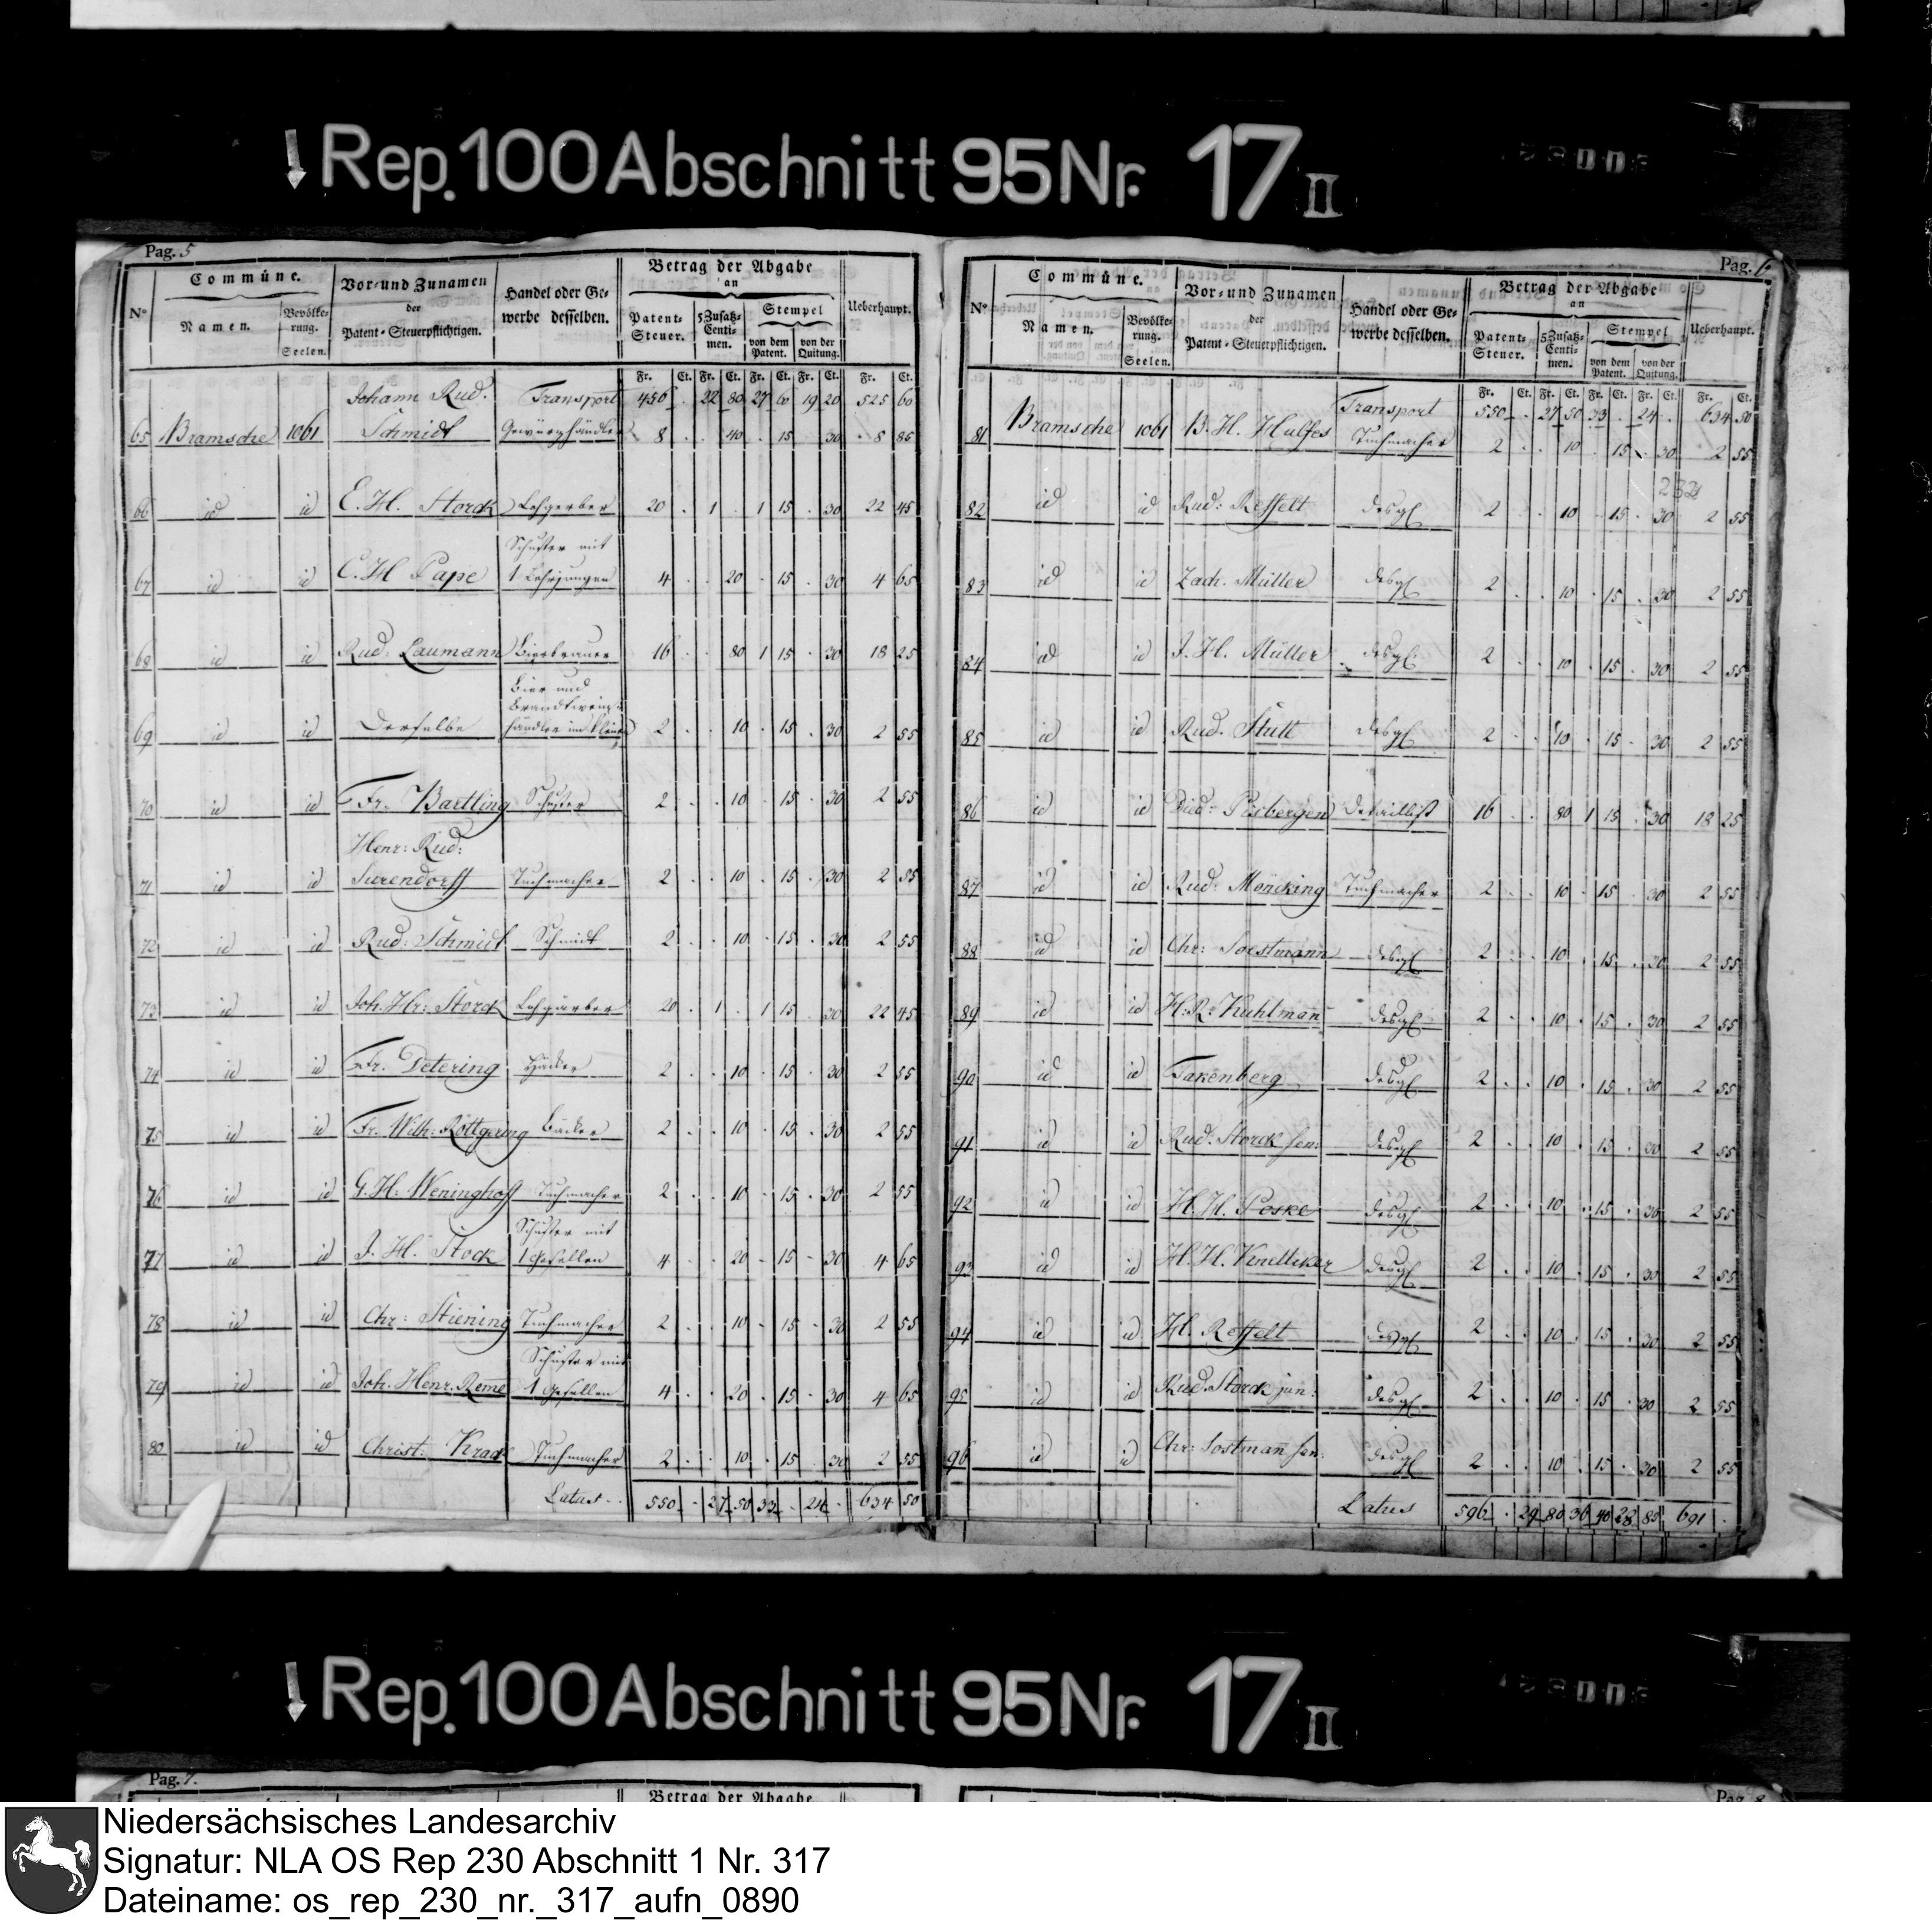 ↓Rep.100 Abschnitt 95 Nr. 17 II
Pag. 5
Commüne.
Vor- und Zunamen
der
Patent-Steuerpflichtigen.
Handel oder Ge-
werbe desselben.
Betrag der Abgabe
an
Ueberhaupt.
N°
Namen.
Bevölke-
rung.
Seelen.
Patent-
Steuer.
5 Zusatz-
Centi-
men.
Stempel
von dem
Patent.
von der
Quitung.
Fr. Ct. Fr. Ct. Fr. Ct. Fr. Ct. Fr. Ct.
Transport 456 . 22 80 27 60 19 20 525 60
65 Bramsche 1061 Johann Rud. Schmidt Gewürzhändler 8 . . 40 . 15 . 30 8 85
66 id id E. H. Storck Lohgerber 20 . 1 . 1 15 . 30 22 45
67 id id C. H Pape Schuster mit 1 Lehrjungen 4 . . 20 . 15 . 30 4 65
68 id id Rud: Laumann Bierbrauer 16 . . 80 1 15 . 30 18 25
69 id id Derselbe Bier und Brandtwein- händler im kleinen 2 . . 10 . 15 . 30 2 55
70 id id Fr. Bartling Schuster 2 . . 10 . 15 . 30 2 55
71 id id Henr: Rud: Surendorff Tuchmacher 2 . . 10 . 15 . 30 2 55
72 id id Rud: Schmidt Schmidt 2 . . 10 . 15 . 30 2 55
73 id id Joh. Hr: Storck Lohgärber 20 . 1 . 1 15 . 30 22 45
74 id id Fr. Detering Häcker 2 . . 10 . 15 . 30 2 55
75 id id Fr. Wilh: Röttgering Bäcker 2 . . 10 . 15 . 30 2 55
76 id id G. H: Weninghoff Tuchmacher 2 . . 10 . 15 . 30 2 55
77 id id J. H. Stock Schuster mit 1 Gesellen 4 . . 20 . 15 . 30 4 65
78 id id Chr: Stiening Tuchmacher 2 . . 10 . 15 . 30 2 55
79 id id Joh. Henr. Reme Schuster mit 1 Gesellen 4 . . 20 . 15 . 30 4 65
80 id id Christ: Krack Tuchmacher 2 . . 10 . 15 . 30 2 55
Latus . . 550 . 27 50 33 . 24 . 634 50
Pag. 6
Commüne.
Vor- und Zunamen
der
Patent-Steuerpflichtigen.
Handel oder Ge-
werbe desselben.
Betrag der Abgabe
an
Ueberhaupt.
N°
Namen.
Bevölke-
rung.
Seelen.
Patent-
Steuer.
5 Zusatz-
Centi-
men.
Stempel
von dem
Patent.
von der
Quitung.
Fr. Ct. Fr. Ct. Fr. Ct. Fr. Ct. Fr. Ct.
Transport 550 . 27 50 33 . 24 . 634 50
81 Bramsche 1061 B. H. Hulfes Tuchmacher 2 . . 10 . 15 . 30 2 55
232
82 id id Rud: Reffelt desgl 2 . . 10 . 15 . 30 2 55
83 id id Zach. Müller desgl 2 . . 10 . 15 . 30 2 55
84 id id J. H. Müller desgl. 2 . . 10 . 15 . 30 2 55
85 id id Rud. Stutt desgl 2 . . 10 . 15 . 30 2 55
86 id id Died: Pisbergen Detaillist 16 . . 80 1 15 . 30 18 25
87 id id Rud: Möncking Tuchmacher 2 . . 10 . 15 . 30 2 55
88 id id Chr: Soestmann desgl 2 . . 10 . 15 . 30 2 55
89 id id H: R: Kuhlman desgl 2 . . 10 . 15 . 30 2 55
90 id id Takenberg desgl 2 . . 10 . 15 . 30 2 55
91 id id Rud. Storck sen: desgl 2 . . 10 . 15 . 30 2 55
92 id id H. H. Poske desgl 2 . . 10 . 15 . 30 2 55
93 id id H. H. Knelleker desgl 2 . . 10 . 15 . 30 2 55
94 id id H. Reffelt desgl 2 . . 10 . 15 . 30 2 55
95 id id Rud. Storck jun: desgl 2 . . 10 . 15 . 30 2 55
96 id id Chr: Sostman sen: desgl 2 . . 10 . 15 . 30 2 55
Latus 596 . 29 80 36 40 28 80 691 .
↓Rep.100 Abschnitt 95 Nr. 17 II
Pag. 7.
Betrag der Abgabe
Pag. 8
Niedersächsisches Landesarchiv
Signatur: NLA OS Rep 230 Abschnitt 1 Nr. 317
Dateiname: os_rep_230_nr._317_aufn_0890